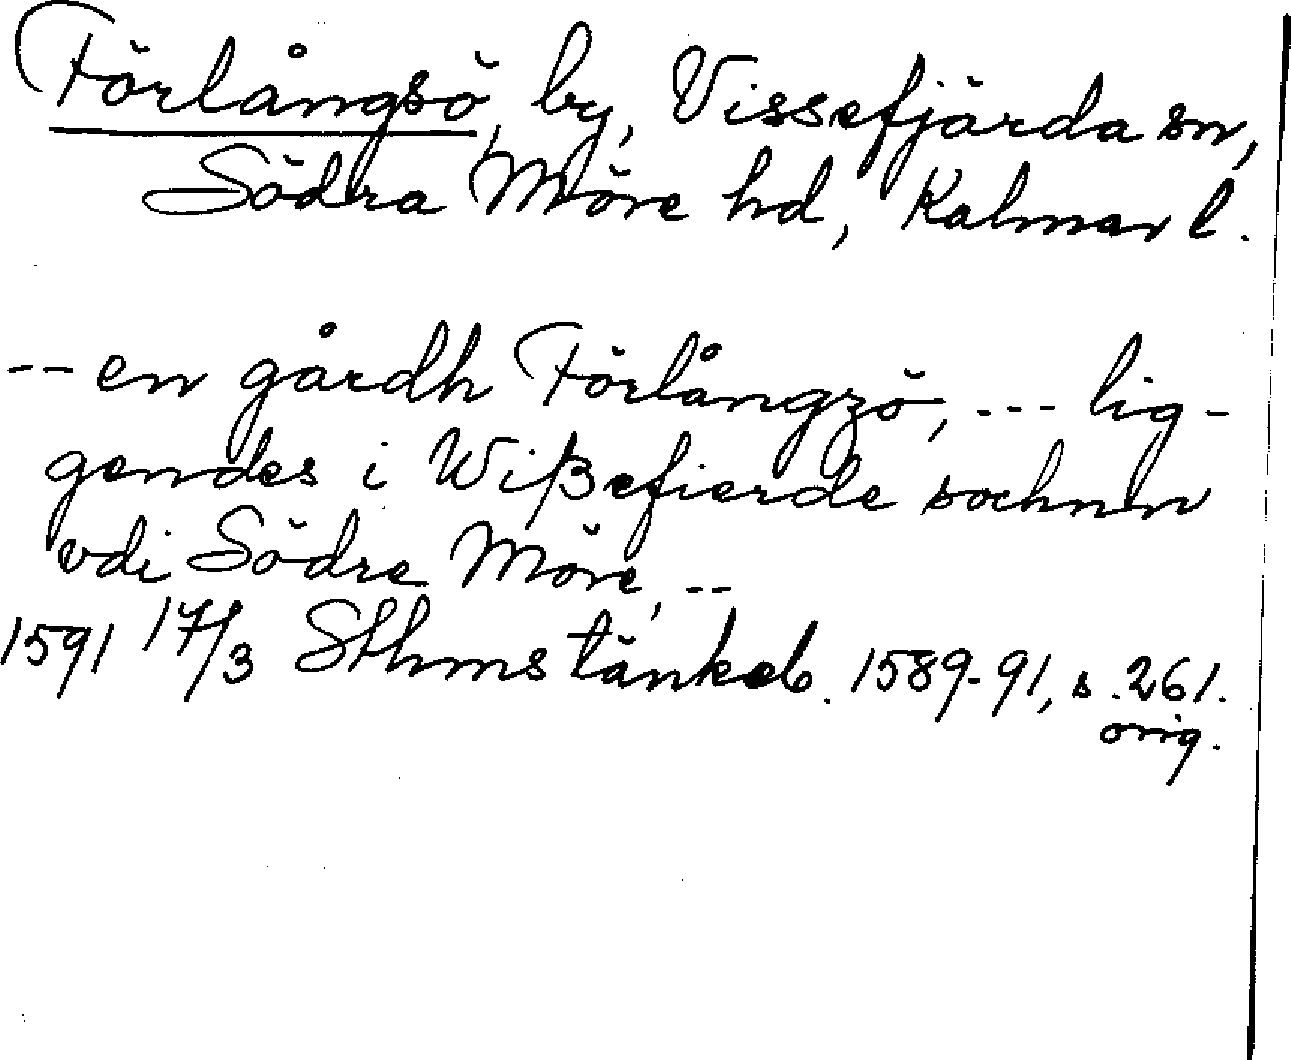 Förlångsö, by, Vissefjärda sn,
Södra Möre hd, Kalmar l.
-- en gårdh Förlångzö, --- lig-
gendes i Wißefierde sochnn
vdi Södre Möre, --
1591 17/3 Sthms tänkeb. 1589-91, s. 261.
orig.